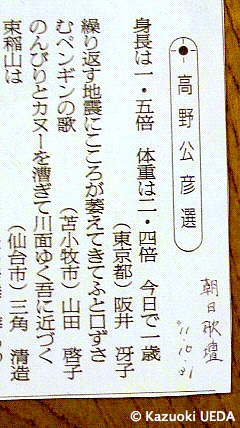 高野公彦選
身長は一・五倍 体重は二・四倍 今日で一歳
(東京都) 阪井 冴子
繰り返す地震にこころが萎えてきてふと口ずさ
むペンギンの歌 (苫小牧市) 山田 啓子
のんびりとカヌーを漕ぎて川面ゆく吾に近づく
束稲山は (仙台市) 三角 清造
朝日歌壇
'11.10.31
© Kazuoki UEDA